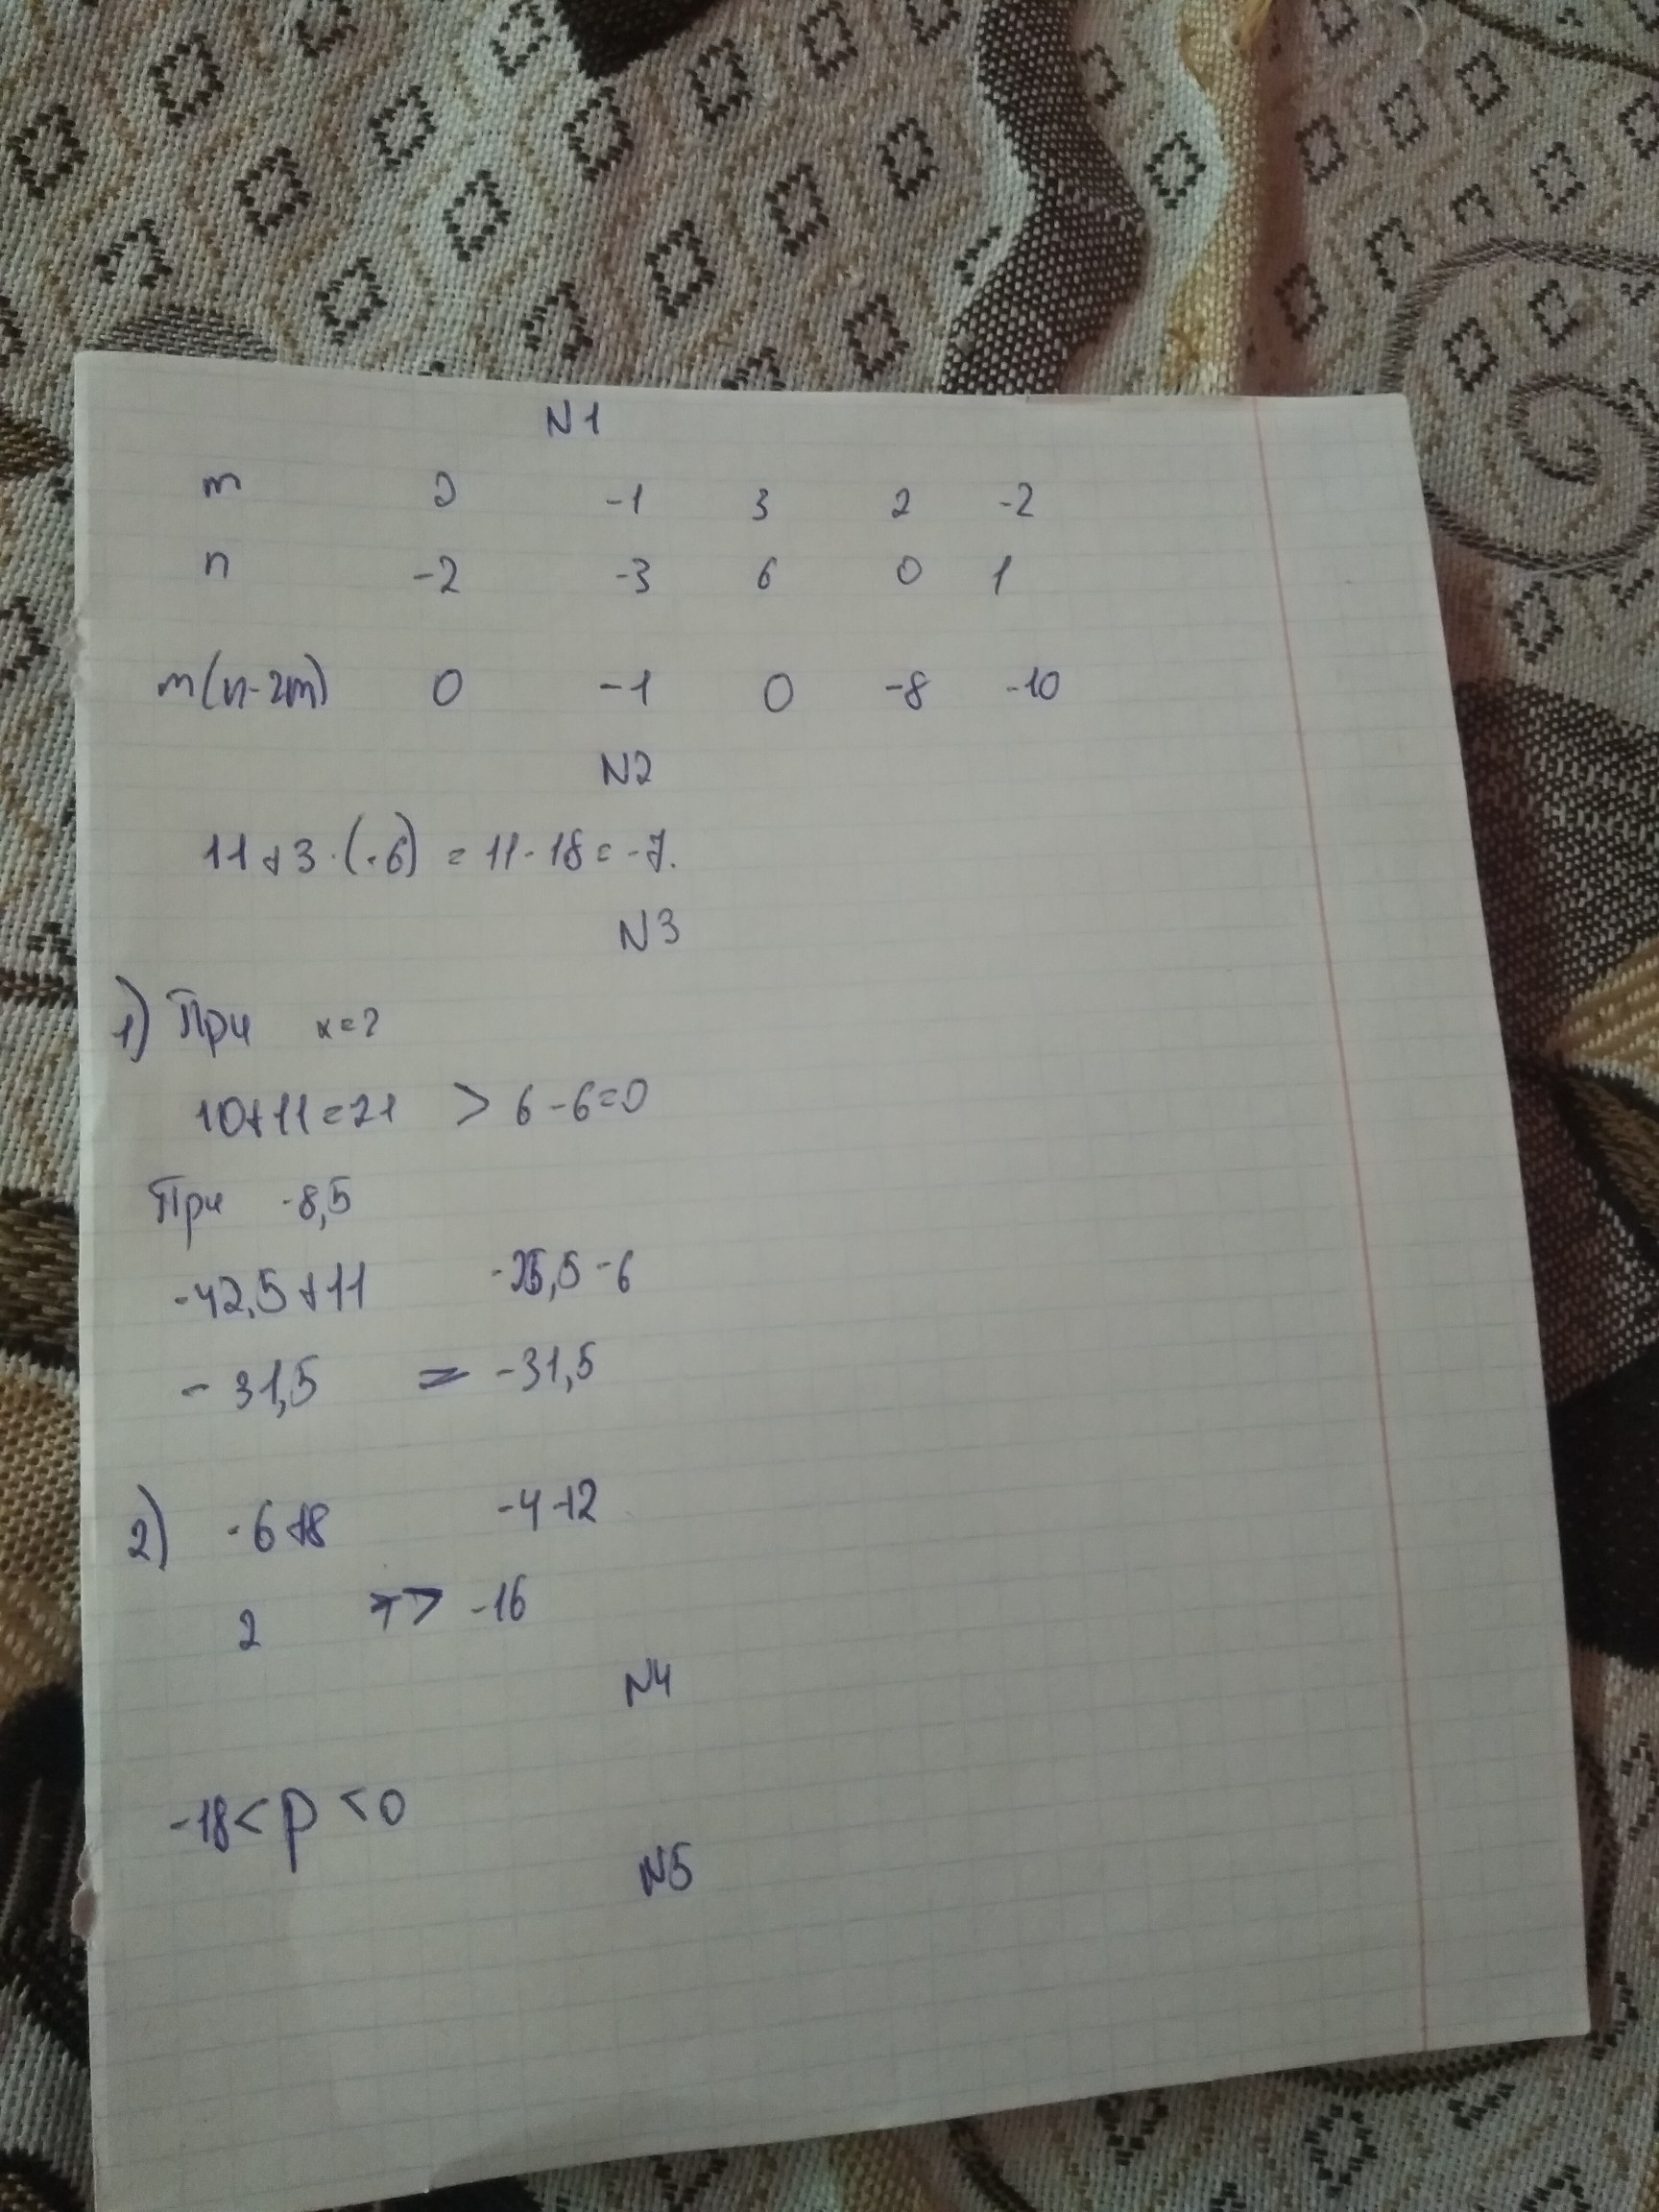 N1
m 0 -1 3 2 -2
n -2 -3 6 0 1
m(n-2m) 0 -1 0 -8 -10
N2
11+3·(-6) = 11-18=-7.
N3
1) При x=2
10+11=21 > 6-6=0
При -8,5
-42,5+11 -25,5-6
-31,5 = -31,5
2) -6+8 -4-12
2 > -16
N4
-18<p<0
N5